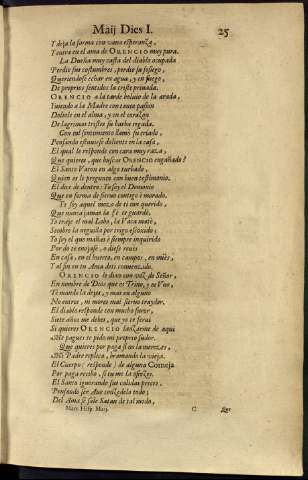 Maij Dies I.
25
Y deja la forma con vana esperanza,
Y entra en el ama de ORENCIO muy pura.
La Dueña muy casta del diablo ocupada
Perdió sus costumbres, perdió su sosiego,
Queriendose echar en agua, y en fuego,
De proprios sentidos la triste privada.
ORENCIO a la tarde bolvió de la arada,
Yuntado a la Madre con tanta passion
Doliente en el alma, y en el corazon
De lagrimas tristes su barba regada.
Con tal sentimiento llamó su criado,
Pensando estuviesse doliente en la casa,
El qual le responde con cara muy rasa,
Que quieres, que buscas ORENCIO engañado?
El Santo Varon en algo turbado,
Quien eres le pregunta con buen testimonio.
El dice de dentro: Yo soy el Demonio
Que en forma de siervo contigo è morado.
Yo soy aquel mozo de ti tan querido,
Que nunca jamas la fe te guardé,
Yo traje el mal Lobo, la Vaca maté,
Y sobre la
Yo soy el que mañas è siempre inquirido
Por do te enojase, o diesse
En casa, en el huerto, en campos, en mies,
Y al fin en tu Ama
ORENCIO le dixo con voz de Señor,
En nombre de Dios que es Trino, y es Uno,
Te mando la dejes, y mas en alguno
No entres, ni mores mal siervo traydor.
El diablo responde con mucho furor,
Siete años me debes, que yo te serví
Si quieres ORENCIO lanzarme de aqui
Me pagues te pido mi proprio sudor.
Que quieres por paga
Mi Padre replica, bramando la vieja.
El Cuerpo (responde) de alguna Corneja
Por paga recibo, si tu me la ofreces.
El Santo ignorando sus
Pensando ser Ave
Del Ama se sale Satan de tal modo,
Mart. Hisp. Maij.
C
Que